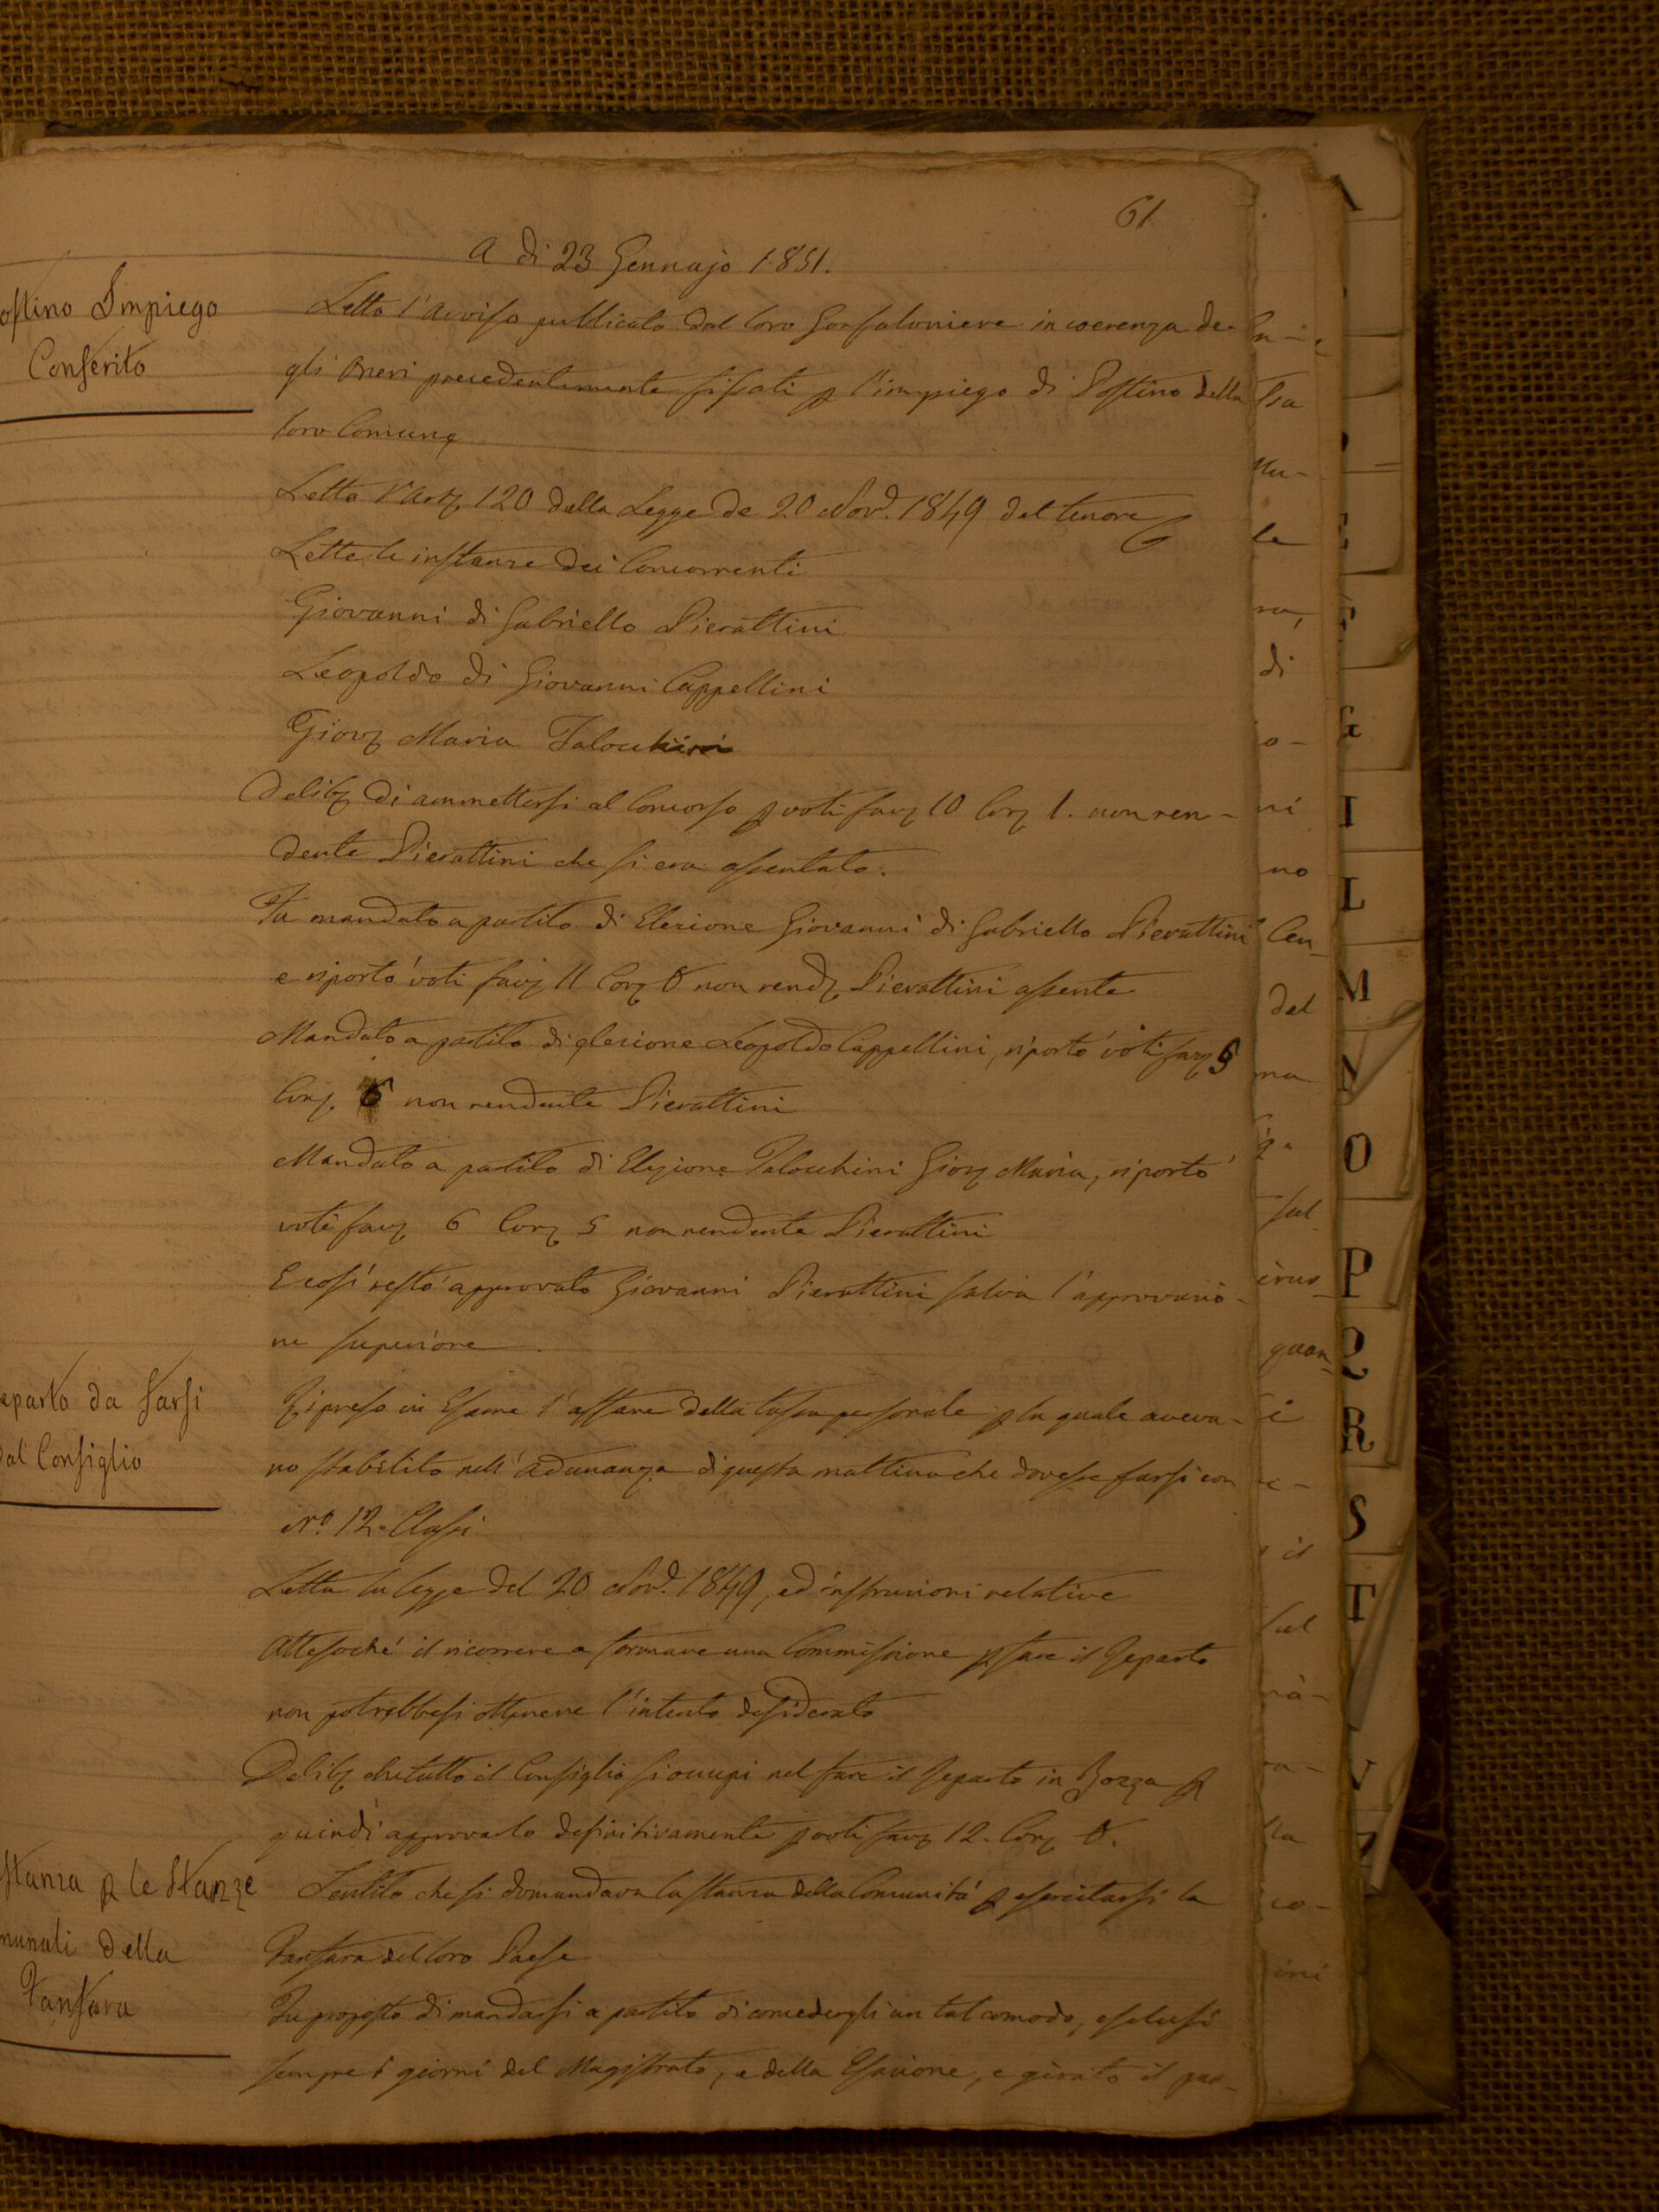 61
A di 23 Gennajo 1851.
ostino Impiego
Conferito
Letto l'Avviso pubblicato dal loro Gonfaloniere in coerenza de-
gli Oneri precedentemente fissati p l'impiego di Postino della
loro Comune
Letto l'Art 120 della Legge de 20 Nov. 1849 del tenore
Lette le instanze dei Concorrenti
Giovanni di Gabriello Pierattini
Leopoldo di Giovanni Cappellini
Giov Maria Talocchini
Delib di ammettersi al Concorso p voti fav 10 Con 1. non ren-
dente Pierattini che si era assentato.
Fu mandato a partito di Elezione Giovanni di Gabriello Pierattini
e riportò voti fav 11 Con 0 non rend Pierattini assente
Mandato a partito di elezione Leopoldo Cappellini, riportò voti fav 5
Con 6 non rendente Pierattini
Mandato a partito di Elezione Talocchini Giov Maria, riportò
voti fav 6 Con 5 non rendente Pierattini
E così restò approvato Giovanni Pierattini salva l'approvazio-
ne superiore
eparto da farsi
dal Consiglio
Ripreso in Esame l'affare della tassa personale p la quale aveva-
no stabilito nell'adunanza di questa mattina che dovesse farsi con
N.º 12. Classi
Letta la legge del 20 Nov. 1849, ed instruzioni relative
Attesoché il ricorrere a formare una Commissione p fare il Reparto
non potrebbesi ottenere l'intento desiderato
Delib che tutto il Consiglio si occupi nel fare il Reparto in Bozza p
quindi approvarlo definitivamente p voti fav 12. Con 0.
stanza p le Stanze
munali della
Fanfara
Sentito che si domandava la stanza della Comunità p esercitarsi la
Fanfara del loro Paese
Fu proposto di mandarsi a partito di concedergli un tal comodo, esclusi
sempre i giorni del Magistrato, e della Esazione, e girato il par-
la
di
no
del
sul
quan
il
sul
A
E
F
G
I
L
M
N
O
P
Q
R
S
T
V
Z